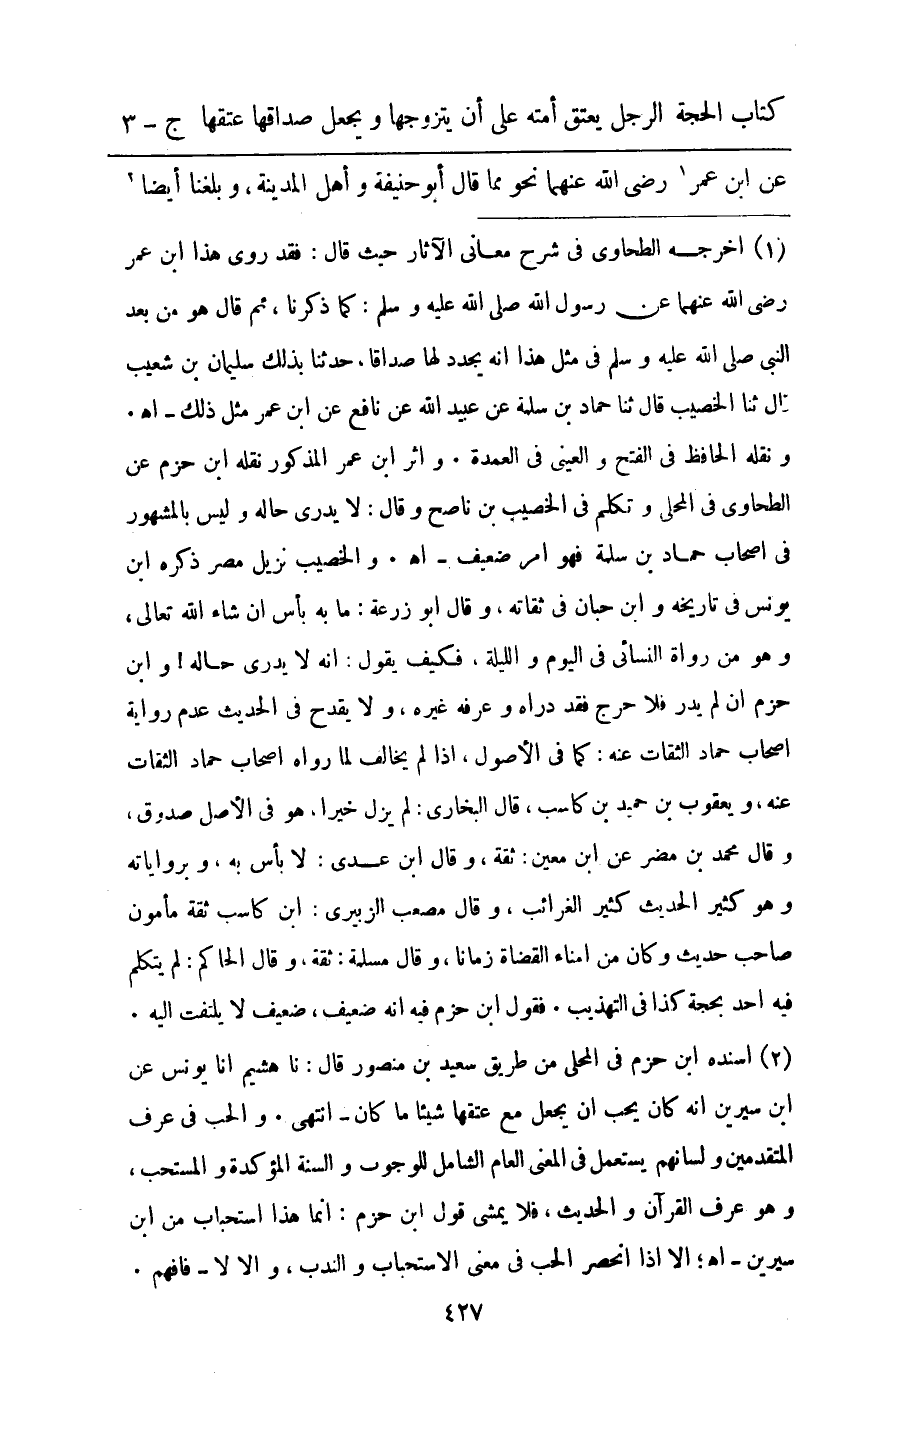 كتاب الحجة الرجل يعتق أمته على أن يتزوجها و يجعل صداقها عتقها ج - ٣
عن ابن عمر ١ رضى الله عنهما نحو مما قال أبو حنيفة و أهل المدينة ، و بلغنا أيضا ٢
(١) اخرجه الطحاوى فى شرح معانى الآثار حيث قال : فقد روى هذا ابن عمر
رضى الله عنهما عن رسول الله صلى الله عليه و سلم : كما ذكرنا ، ثم قال هو من بعد
النبى صلى الله عليه و سلم فى مثل هذا انه يجدد لها صداقا ، حدثنا بذلك سليمان بن شعيب
قال ثنا الخصيب قال ثنا حماد بن سلمة عن عبيد الله عن نافع عن ابن عمر مثل ذلك - اه .
و نقله الحافظ فى الفتح و العينى فى العمدة . و اثر ابن عمر المذكور نقله ابن حزم عن
الطحاوى فى المحلى و تكلم فى الخصيب بن ناصح و قال : لا يدرى حاله و ليس بالمشهور
فى اصحاب حماد بن سلمة فهو امر ضعيف - اه . و الخصيب نزيل مصر ذكره ابن
يونس فى تاريخه و ابن حبان فى ثقاته ، و قال ابو زرعة : ما به بأس ان شاء الله تعالى ،
و هو من رواة النسائى فى اليوم و الليلة ، فكيف يقول : انه لا يدرى حاله ! و ابن
حزم ان لم يدر فلا حرج فقد دراه و عرفه غيره ، و لا يقدح فى الحديث عدم رواية
اصحاب حماد الثقات عنه : كما فى الأصول ، اذا لم يخالف لما رواه اصحاب حماد الثقات
عنه ، و يعقوب بن حميد بن كاسب ، قال البخارى : لم يزل خيرا ، هو فى الأصل صدوق ،
و قال محمد بن مضر عن ابن معين : ثقة ، و قال ابن عدى : لا بأس به ، و برواياته
و هو كثير الحديث كثير الغرائب ، و قال مصعب الزبيرى : ابن كاسب ثقة مأمون
صاحب حديث و كان من امناء القضاة زمانا ، و قال مسلمة : ثقة ، و قال الحاكم : لم يتكلم
فيه احد بحجة كذا فى التهذيب . فقول ابن حزم فيه انه ضعيف ، ضعيف لا يلتفت اليه .
(٢) اسنده ابن حزم فى المحلى من طريق سعيد بن منصور قال : نا هشيم انا يونس عن
ابن سيرين انه كان يحب ان يجعل مع عتقها شيئا ما كان - انتهى . و الحب فى عرف
المتقدمين و لسانهم يستعمل فى المعنى العام الشامل للوجوب و السنة المؤكدة و المستحب ،
و هو عرف القرآن و الحديث ، فلا يمشى قول ابن حزم : انما هذا استحباب من ابن
سيرين - اه ؛ الا اذا انحصر الحب فى معنى الاستحباب و الندب ، و الا لا - فافهم .
٤٢٧